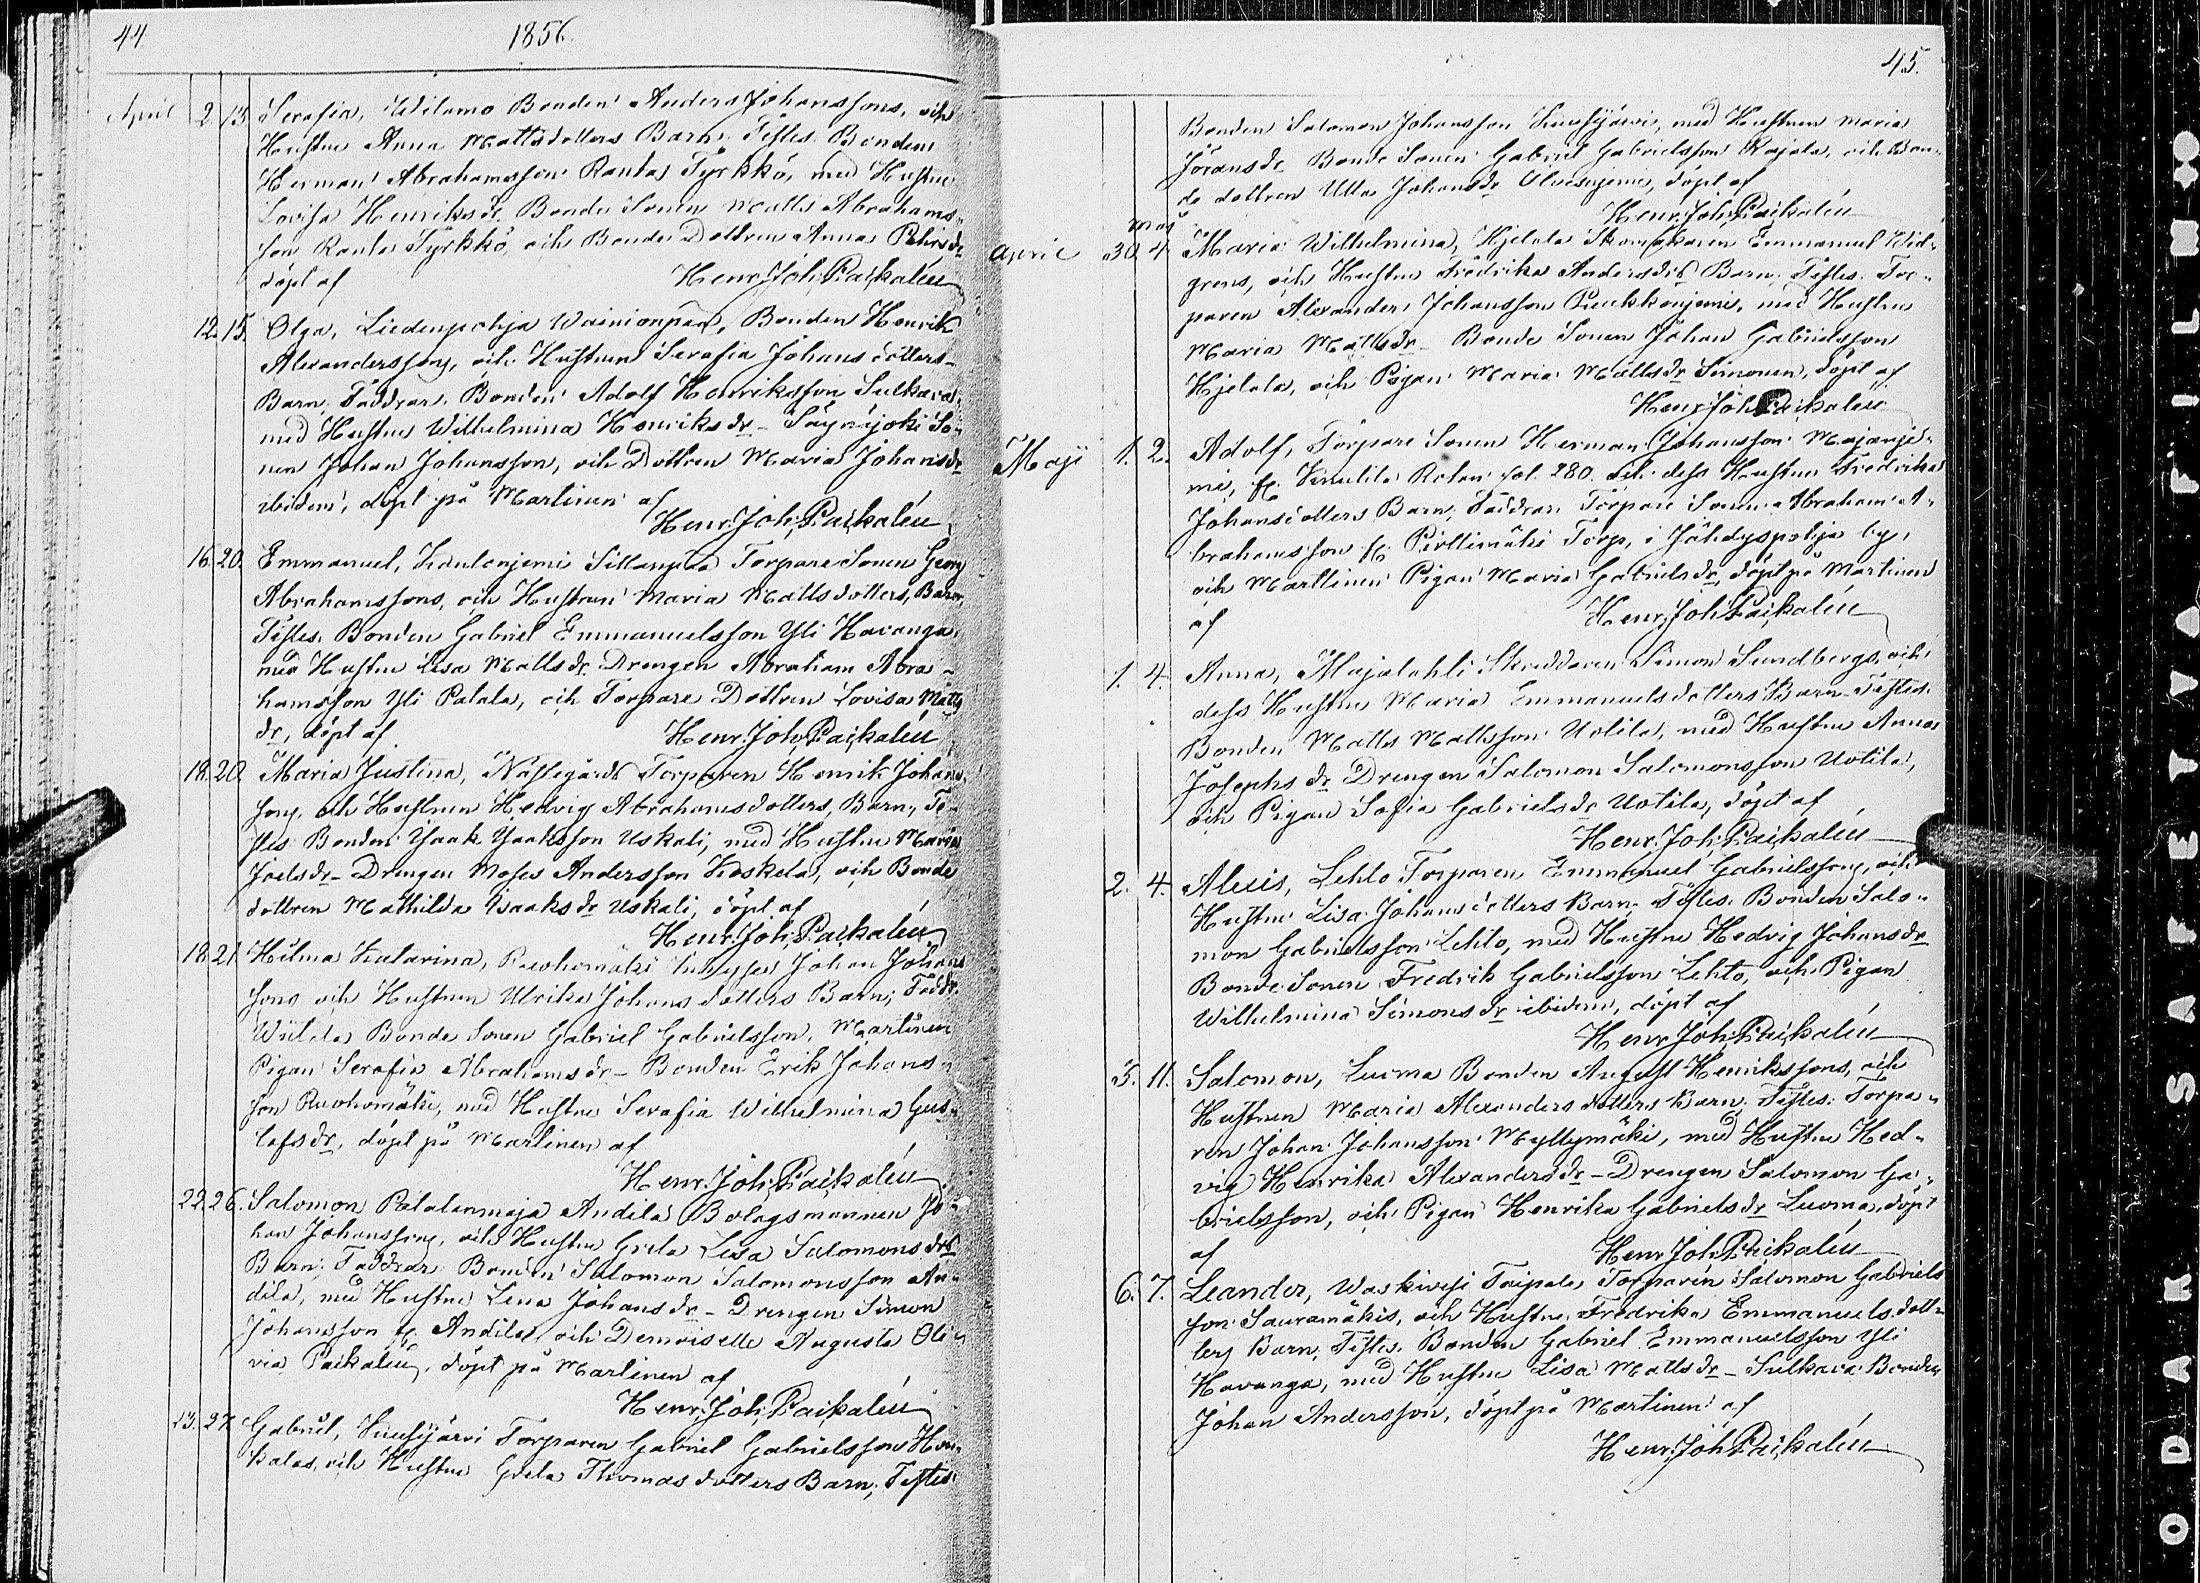 44
1856
April 2 13 Serafia, Uitamo Bonden Anders Johanssons, och
Hustrus Anna Mattsdotters Barn; Testes. Bonden
Herman Abrahamsson Rantas Tyrkkö, med Hustru
Lovisa Henriksdr. Bonde Sonen Matts Abrahams-
son Rantas Tyrkkö, och Bonde Dottren Anna Pehrsdr
döpt af Henr. Joh. Paikalén
12. 15. Olga, Liedenpohja Wainionpää, Bonden Henrik
Alexanderssons, och Hustrun Serafia Johansdotters
Barn. Faddrar. Bonden Adolf Henriksson Sulkava
med Hustru Wilhelmina Henriksdr - Säynäjoki So-
nen Johan Johansson, och Dottren Maria Johansdr
ibidem, döpt på Martinen af
Henr. Joh. Paikalén
16. 20. Emmanuel, Kauttonjemi Sillanpää Torpare Sonen Georg
Abrahamssons, och Hustrun Maria Mattsdotters, Barn,
Testes. Bonden Gabriel Emmanuelsson Yli Havanga,
med Hustru Lisa Mattsdr. Drengen Abraham Abra-
hamsson Yli Patala, och Torpare Dottren Lovisa Matts
dr, döpt af Henr. Joh. Paikalén
18. 20 Maria Justina, Nässegårds Torparen Henrik Johans-
sons, och Hustrun Hedvig Abrahamsdotters, Barn, Te-
stes Bonden Ysaak Ysaaksson Uskali, med Hustru Maria
Joelsdr - Drengen Moses Andersson Koskela, och Bonde
dottren Mathilda Isaaksdr Uskali, döpt af
Henr. Joh. Paikalén
18. 21. Hilma Katarina, Ruohomäki Johan Johans
sons och Hustrun Ulrika Johansdotters Barn; Faddr.
Wiitala Bonde Sonen Gabriel Gabrielsson, Martinen
Pigan Serafia Abrahamsdr - Bonden Erik Johans-
son Ruohomäki, med Hustru Serafia Wilhelmina Gus-
tafsdr, döpt på Martinen af
Henr. Joh. Paikalén
22. 26. Salomon Patalanmaja Andila Bolagsmannen Jo-
han Johanssons, och Hustru Greta Lisa Salomonsdrs
Barn; Faddrar Bonden Salomon Salomonsson An-
dila, med Hustru Lena Johansdr - Drengen Simon
Johansson fr. Andila, och Demoiselle Augusta Oli-
via Paikalén, döpt på Martinen af
Henr. Joh. Paikalén
23. 27. Gabriel, Kuusijärvi Torparen Gabriel Gabrielsson Hon-
kalas, och Hustru Greta Thomasdotters Barn; Testes
45.
Bonden Salomon Johansson Kuusijärvi, med Hustrun Maria
Jöransdr. Bonde Sonen Gabriel Gabrielsson Rajala, och Bon-
de dottren Ulla Johansdr döpt af
Henr. Joh. Paikalén
Maj
April 30. 4. Maria Wilhelmina, Hjelala Skomakaren Emmanuel Wid-
grens, och Hustru Fredrika Andersdrs Barn; Testes. Tor-
paren Alexander Johansson Ruokkonjemi, med Hustru
Maria Mattsdr - Bonde Sonen Johan Gabrielsson
Hjelala, och Pigan Maria Mattsdr Simonen, döpt af
Henr. Joh. Paikalén
Maji 1. 2. Adolf, Torpare Sonen Herman Johansson Majanje-
mi, fr. Kurulila Rotan fol. 280. och dess Hustru Fredrika
Johansdotters Barn; Faddrar Torpare Sonen Abraham A-
brahamsson fr. Pirttimäki Torp, i Jähdyspohja by,
och Marttinen Pigan Maria Gabrielsdr, döpt på Martinen
af Henr. Joh. Paikalén
1. 4. Anna, Majalahti Skreddaren Simon Sundbergs, och
dess Hustru Maria Emmanuelsdotters Barn - Testes.
Bonden Matts Mattsson Uotila, med Hustru Anna
Josephsdr Drengen Salomon Salomonsson Uotila,
och Pigan Sofia Gabrielsdr Uotila, döpt af
Henr. Joh. Paikalén
2. 4. Alexis, Lehto Torparen Emmanuel Gabrielssons, och
Hustru Lisa Johansdotters Barn; Testes. Bonden Salo-
mon Gabrielsson Lehto, med Hustru Hedvig Johansdr
Bonde Sonen Fredrik Gabrielsson Lehto, och Pigan
Wilhelmina Simonsdr ibidem, döpt af
Henr. Joh. Paikalén
5. 11. Salomon, Luoma Bonden August Henrikssons, och
Hustrun Maria Alexandersdotters Barn; Testes. Torpa-
ren Johan Johansson Myllymäki, med Hustru Hed-
vig Henrika Alexandersdr - Drengen Salomon Ga-
brielsson, och Pigan Henrika Gabrielsdr Luoma, döpt
af Henr. Joh. Paikalén
6. 7. Leander, Waskivesi Taipale, Torparen Salomon Gabriels
son Sauramäkis, och Hustru Fredrika Emmanuels dott-
ers Barn; Testes. Bonden Gabriel Emmanuelsson Yli
Havanga, med Hustru Lisa Mattsdr - Sulkava Bonden
Johan Andersson, döpt på Martinen af
Henr. Joh. Paikalén
KODAK SAFETY FILM